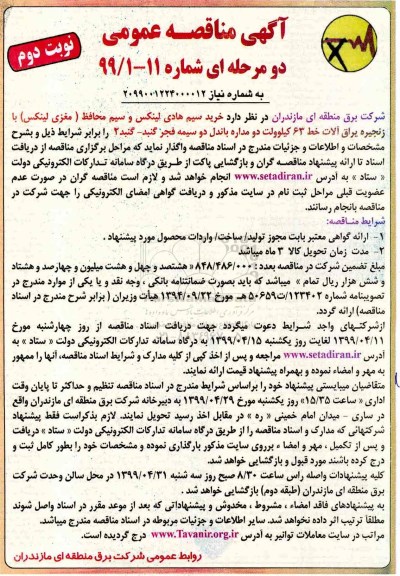 آگهی مناقصه عمومی
دو مرحله ای شماره ۱۱-۹۹/۱
نوبت دوم
به شماره نیاز ۲۰۹۹۰۰۱۲۲۳۰۰۰۰۱۲
شرکت برق منطقه ای مازندران در نظر دارد خرید سیم هادی لینکس و سیم محافظ ( مغزی لینکس) با
زنجیره یراق آلات خط ۶۳ کیلوولت دو مداره باندل دو سیمه فجر گنبد- گنبد۲ را برابر شرایط ذیل و بشرح
مشخصات و اطلاعات و جزئیات مندرج در اسناد مناقصه واگذار نماید که مراحل برگزاری مناقصه از دریافت
اسناد تا ارائه پیشنهاد مناقصه گران و بازگشایی پاکت از طریق درگاه سامانه تدارکات الکترونیکی دولت
« ستاد » به آدرس www.setadiran.ir انجام خواهد شد و لازم است مناقصه گران در صورت عدم
عضویت قبلی مراحل ثبت نام در سایت مذکور و دریافت گواهی امضای الکترونیکی را جهت شرکت در
مناقصه بانجام رسانند.
شرایط مناقصه:
۱- ارائه گواهی معتبر بابت مجوز تولید/ ساخت/ واردات محصول مورد پیشنهاد .
۲- مدت زمان تحویل کالا ۳ ماه میباشد
مبلغ تضمین شرکت در مناقصه بعدد: ۸۴۸/۴۸۶/۰۰۰ « هشتصد و چهل و هشت میلیون و چهارصد و هشتاد
و شش هزار ریال تمام » میباشد که باید بصورت ضمانتنامه بانکی ، وجه نقد و یا یکی از موارد مندرج در
تصویبنامه شماره ۱۲۳۴۰۲/ت۵۰۶۵۹ هـ مورخ ۱۳۹۴/۰۹/۲۲ هیأت وزیران ( برابر شرح مندرج در اسناد
مناقصه) ارائه گردد.
ازشرکتهای واجد شرایط دعوت میگردد جهت دریافت اسناد مناقصه از روز چهارشنبه مورخ
۱۳۹۹/۰۴/۱۱ لغایت روز یکشنبه ۱۳۹۹/۰۴/۱۵ به درگاه سامانه تدارکات الکترونیکی دولت « ستاد » به
آدرس www.setadiran.ir مراجعه و پس از اخذ کپی از کلیه مدارک و شرایط اسناد مناقصه، آنها را ممهور
به مهر و امضاء نموده و بهمراه پیشنهاد قیمت ارائه نمایند.
متقاضیان میبایستی پیشنهاد خود را براساس شرایط مندرج در اسناد مناقصه تنظیم و حداکثر تا پایان وقت
اداری « ساعت ۱۵/۳۵» روز یکشنبه مورخ ۱۳۹۹/۰۴/۲۹ به دبیرخانه شرکت برق منطقه ای مازندران واقع
در ساری - میدان امام خمینی « ره » در مقابل اخذ رسید تحویل نمایند. لازم بذکراست فقط پیشنهاد
شرکتهائی که مدارک و اسناد مناقصه را از طریق درگاه سامانه تدارکات الکترونیکی دولت « ستاد » دریافت
و پس از تکمیل ، مهر و امضاء برروی سایت مذکور بارگذاری نموده و مشخصات خود را بطور کامل ثبت و
درج کرده باشند مورد قبول و بازگشایی خواهد شد.
کلیه پیشنهادات واصله راس ساعت ۸/۳۰ صبح روز سه شنبه ۱۳۹۹/۰۴/۳۱ در محل سالن وحدت شرکت
برق منطقه ای مازندران (طبقه دوم) بازگشایی خواهد شد .
به پیشنهادهای فاقد امضاء ، مشروط ، مخدوش و پیشنهاداتی که بعد از موعد مقرر در اسناد واصل شوند
مطلقاً ترتیب اثر داده نخواهد شد. سایر اطلاعات و جزئیات مربوطه در اسناد مناقصه مندرج میباشد.
مراتب در سایت معاملات توانیر به آدرس www.Tavanir.org.ir درج گردیده است.
روابط عمومی شرکت برق منطقه ای مازندران